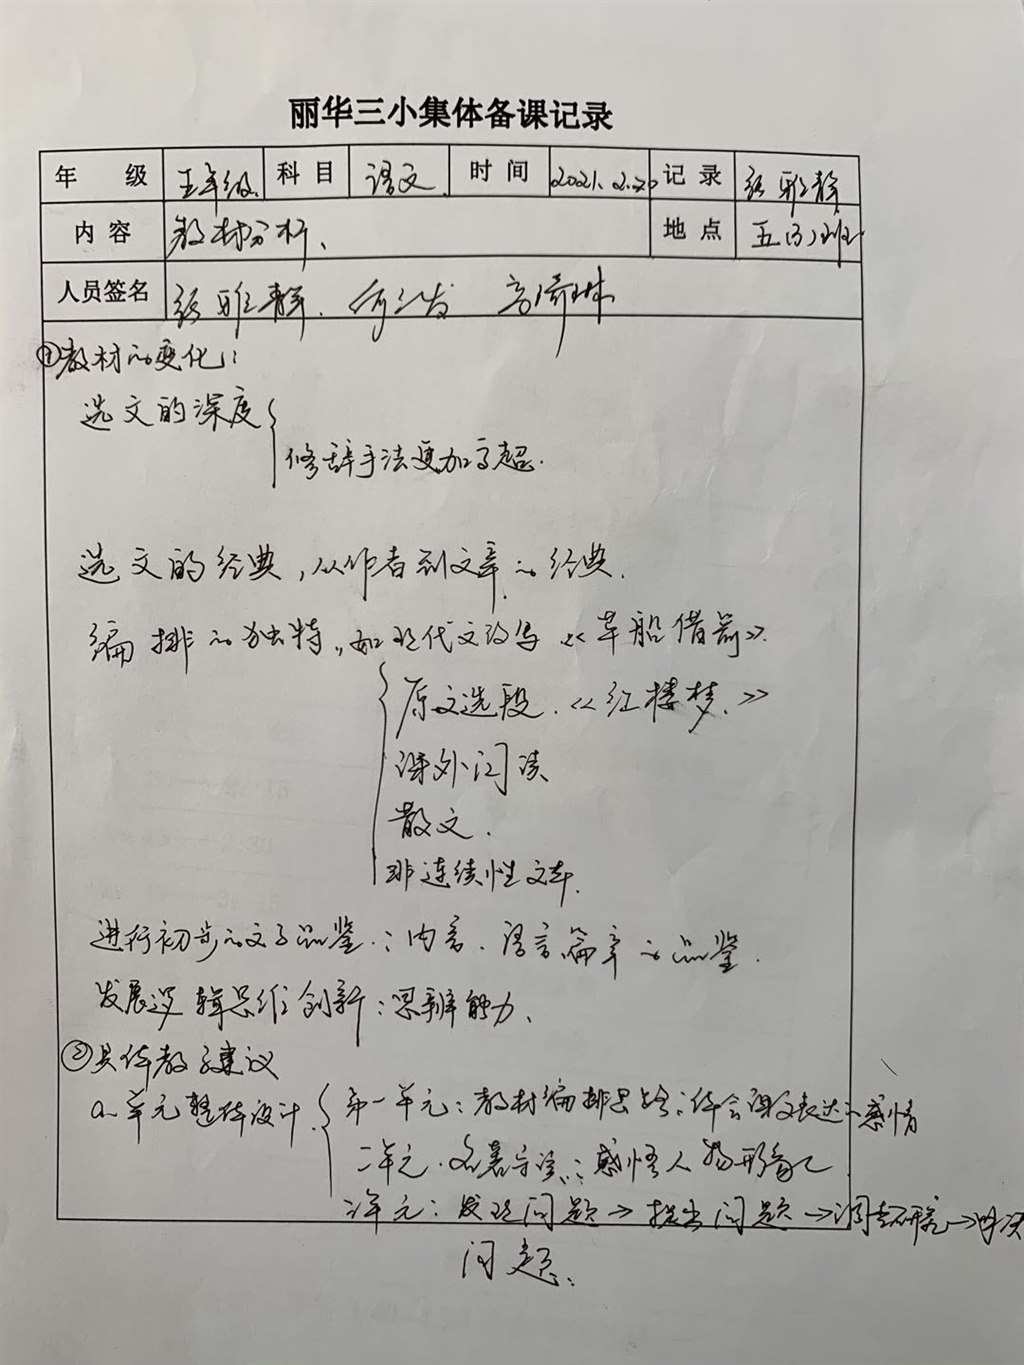 丽华三小集体备课记录
年 级 五年级 科目 语文 时间 2021.2.20 记录 张雅静
内容 教材分析、 地点 五(3)班
人员签名 张雅静.
①教材的变化:
选文的深度
修辞手法更加高超.
选文的经典,从作者到文章的经典.
编排的独特,如现代文改写《草船借箭》.
原文选段.《红楼梦.》
课外阅读
散文.
非连续性文本.
进行初步的文学品鉴:内容.语言.篇章的品鉴.
发展逻辑思维创新:思辨能力、
②具体教学建议
a、单元整体设计 第一单元:教材编排思路:体会课文表达的感情
二单元.名著导读:感悟人物形象
三单元:发现问题→提出问题→调查研究→解决
问题.